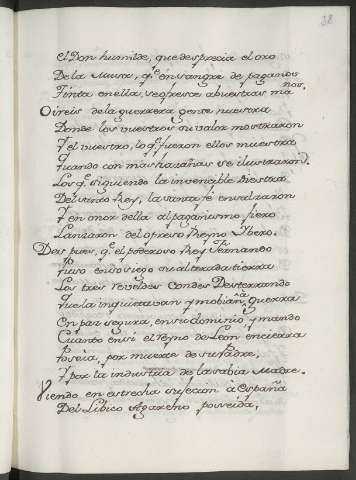 38
El Don humilde, que desprecia el oro
De la Musa, q.e en sangre de paganos
Tinta en ella, se ofrece a buestras ma
nos,
Oireis de la guerrera gente nuestra
Donde los vuestros su valor mostraron
Y el vuestro, lo q.e fueron ellos muestra
Quando con mas hazañas se ilustraron.
Los q.e siguiendo la invencible Diestra
Del Santo Rey, la santa fe ensalzaron
Y en onor della al paganismo fiero
Lanzaron del opreso Reyno Ybero.
Despues, q.e el poderoso Rey Fernando
Puso en sosiego su alterada tierra
Los tres reveldes Condes Desterrando
Que la inquietavan y mobian a guerra
En paz segura, en su dominio y mando
Cuanto en si el reyno de Leon encierra
Poseia, por muerte de su Padre,
Y por la industria de la sabia Madre.
Viendo en estrecha sujecion à España
Del Libico Agareno poseida,